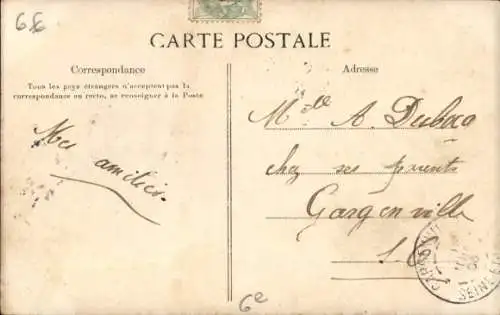 6€
CARTE POSTALE
Correspondance
Tous les pays étrangers n'acceptent pas la
correspondance au recto, se renseigner à la Poste
Mes
amitiés
Adresse
Mlle A. Dubocq
chez ses parents
Gargenville
S. O
6e